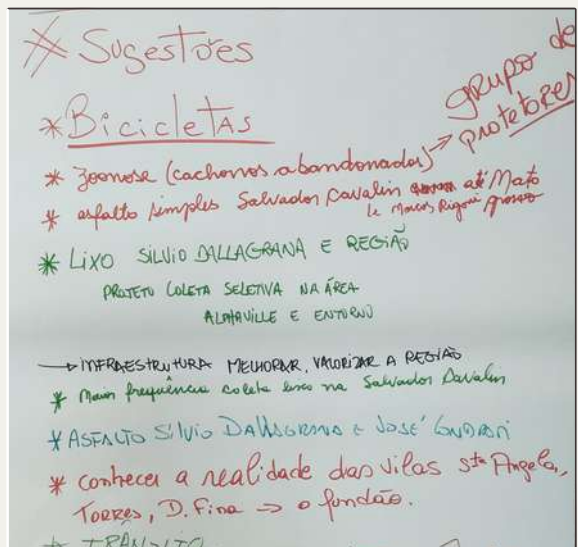 * Sugestões
* Bicicletas
grupo de
protetores
* Zoonose (cachorros abandonados) →
* asfalto simples Salvador Cavalin até Mato
le Marcos Rigoni grosso
* LIXO SILVIO DALLAGRANA E REGIÃO
PROJETO COLETA SELETIVA NA ÁREA
ALPHAVILLE E ENTORNO
→ INFRAESTRUTURA MELHORAR, VALORIZAR A REGIÃO
* Maior frequência coleta lixo na Salvador Cavalin
* ASFALTO SILVIO DALLAGRANA E JOSÉ
* conhecer a realidade das vilas Sta Angela,
TORRES, D. Fina → o fundão.
* TRÂNSITO